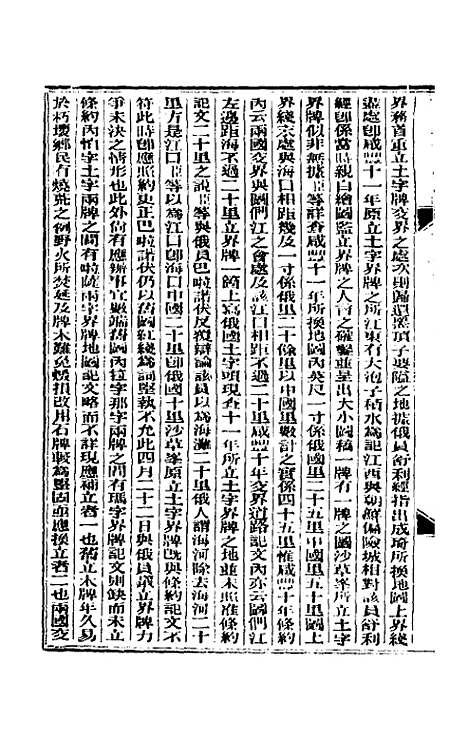 界務首重立土字牌交界之處次則歸還黑頂子要隘之地據俄員舒利經指出成琦所換地圖上界綫
盡處卽咸豐十一年原立土字界牌之所江東有大泡子積水為記江西與朝鮮偏險城相對該員舒利
經卽係當時親自繪圖監立界牌之人言之確鑿並呈出大小圖稿一牌有一牌之圖沙草峯所立土字
界牌似非無據臣等詳查咸豐十一年所換地圖內英尺一寸係俄里二十五里中國里五十里圖上
界綫盡處與海口相距幾及一寸係俄里二十餘里以中國里數計之實係四十五里惟咸豐十年條約
內云兩國交界與圖們江之會處及該江口相距不過二十里咸豐十年交界道路記文內亦云圖們江
左邊距海不過二十里立界牌一箇上寫俄國土字頭現查十一年所立土字界牌之地並未照准條約
記文二十里之說臣等與俄員巴啦諾伏反覆辯論該員以為海灘二十里俄人謂海河除去海河二十
里方是江口臣等以為江口卽海口中國二十里卽俄國十里沙草峯原立土字界牌旣與條約記文不
符此時卽應照約更正巴啦諾伏仍以舊圖紅綫為詞堅執不允此四月二十二日與俄員議立界牌力
爭未決之情形也此外尙有應辦事宜數端舊圖內拉字那字兩牌之間有瑪字界牌記文則缺而未立
條約內怕字土字兩牌之間有啦薩兩字界牌地圖記文略而不詳現應補立者一也舊立木牌年久易
於朽壞鄉民有燒荒之例野火所焚延及牌木難免燬損改用石牌較為堅固亟應換立者二也兩國交